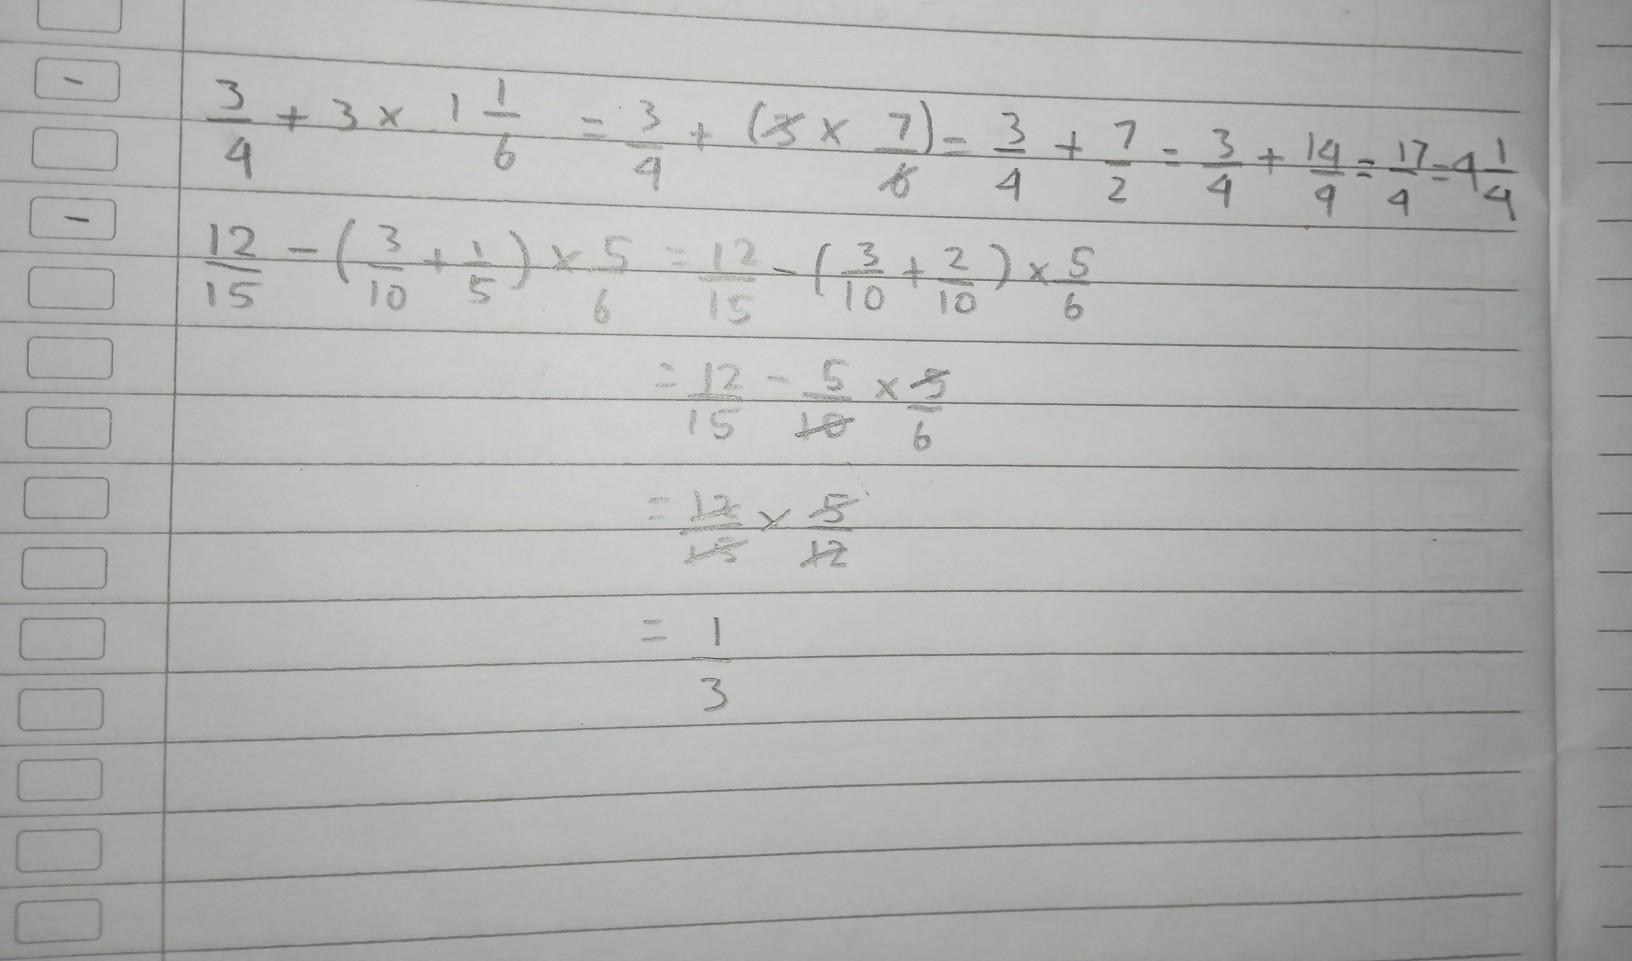 - 3/4 + 3 × 1 1/6 = 3/4 + (3 × 7/6) = 3/4 + 7/2 = 3/4 + 14/4 = 17/4 = 4 1/4
- 12/15 - (3/10 + 1/5) × 5/6 = 12/15 - (3/10 + 2/10) × 5/6
= 12/15 - 5/10 × 5/6
= 12/15 × 5/12
= 1/3